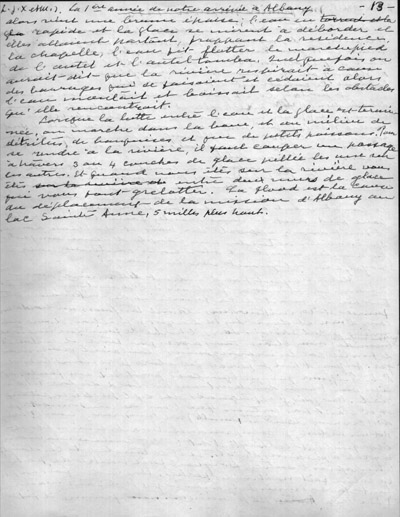 (-j. x Au.). La 1ère année de notre arrivée à Albany, - 13 -
alors vint une brume épaisse, l'eau en torrent et la
rapide et la glace se mirent à déborder et
elles allaient partout, frappant la résidence
la chapelle, l'eau fit flotter le marchepied
de l'autel et l'autel tomba. Quelquefois on
aurait dit que la rivière respirait à cause
des barrages qui se faisaient et cédaient alors
l'eau montait et baissait selon les obstacles
qu'elle rencontrait.
Lorsque la lutte entre l'eau et la glace est termi-
née, on marche dans la boue et au milieu de
détritus, de banquises et que de petits poissons. Pour
se rendre à la rivière, il faut couper un passage
à travers 3 ou 4 couches de glace pillée les unes sur
les autres. Et quand vous êtes sur la rivière vous
êtes sur la rivière de entre deux murs de glace
que vous font grelotter. La flood est la cause
du déplacement de la mission d'Albany au
lac Sainte Anne, 5 milles plus haut.